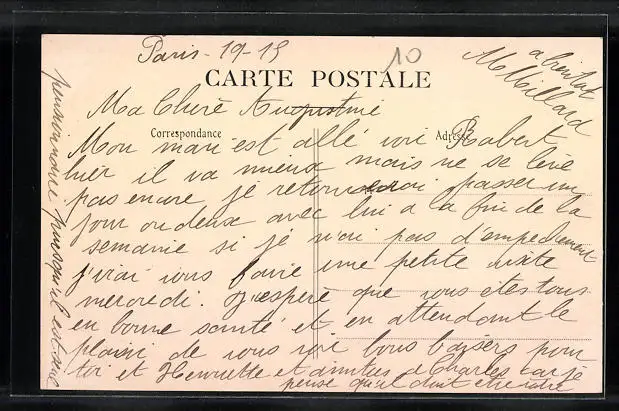 Paris - 19-15
10
CARTE POSTALE
Correspondance
Adresse
Ma Chère Augustine
Mon mari est allé voir Robert
hier il va mieux mais ne se lève
pas encore je retournerai passer un
jour ou deux avec lui a la fin de la
semaine si je n'ai pas d'empechement
j'irai vous faire une petite visite
mercredi. J'espère que vous êtes tous
en bonne santé et en attendant le
plaisir de vous voir bons baisers pour
toi et Henriette et amitiés a Charles car je
pense qu'il doit être
puisqu'il est
a bientot
M Millard